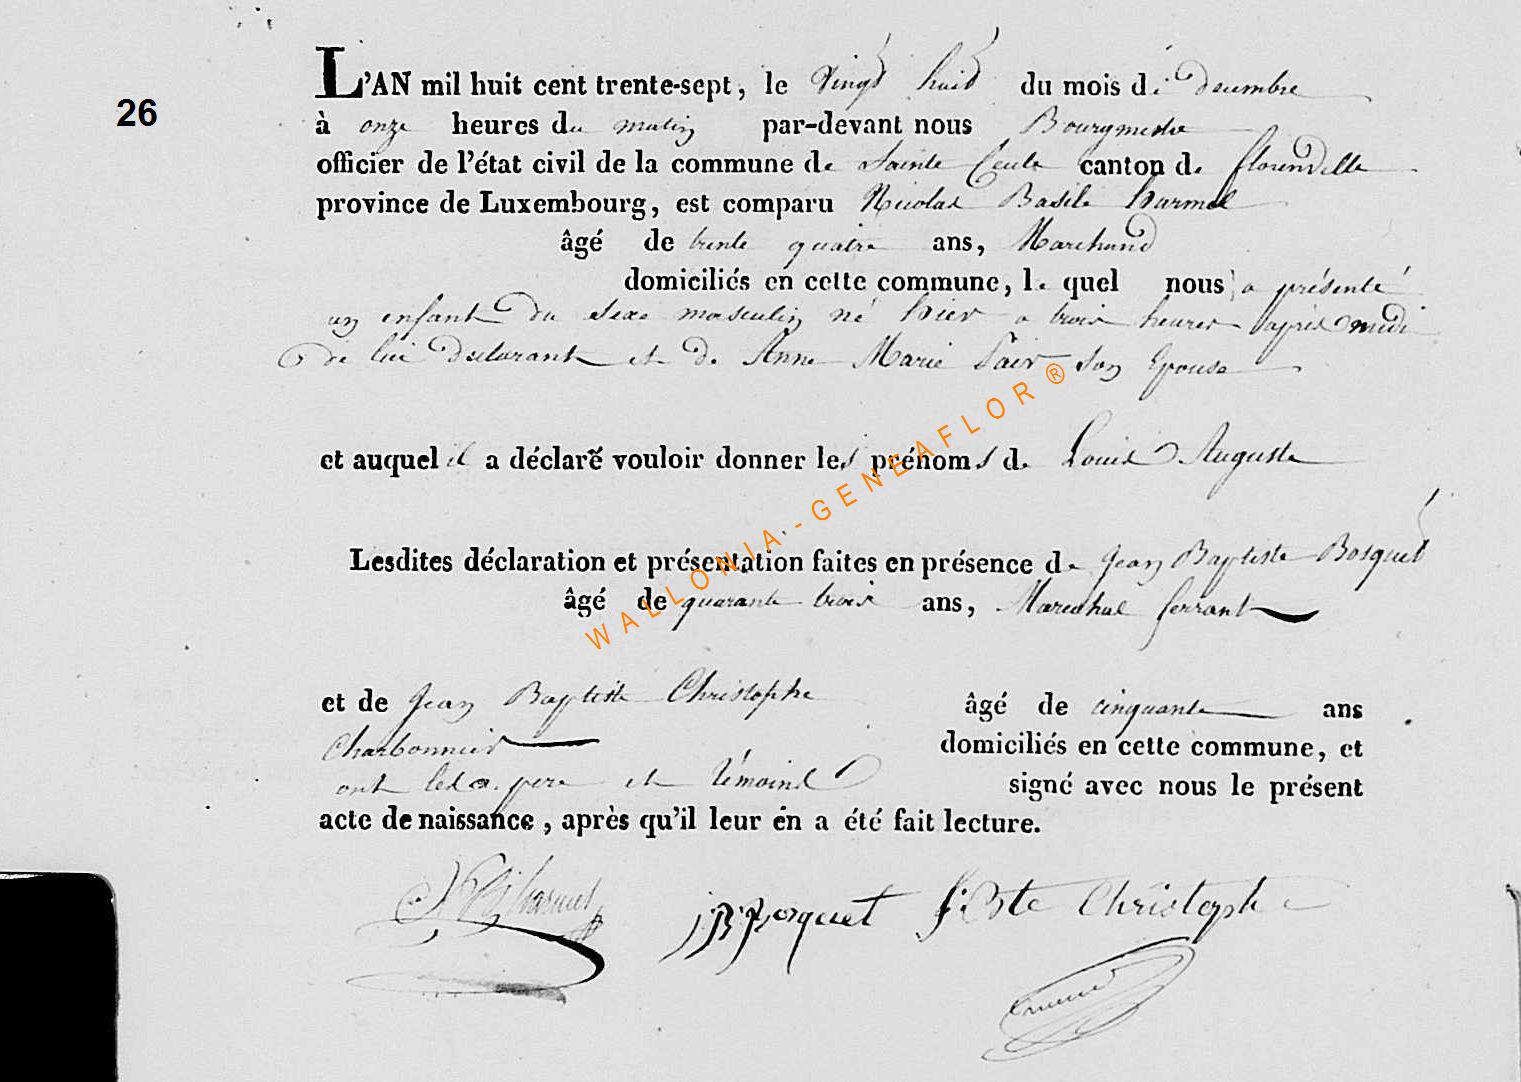 L'AN mil huit cent trente-sept, le vingt huit du mois de decembre
26
à onze heures du matin par-devant nous Bourgmestre
officier de l'état civil de la commune de Sainte Cecile canton de florenville
province de Luxembourg, est comparu Nicolas Basile Harmel
âgé de trente quatre ans, Marchand
domiciliés en cette commune, le quel nous a présenté
un enfant du sexe masculin né hier a trois heures après midi
de lui declarant et de Anne Marie son Epouse
et auquel il a déclaré vouloir donner les prénoms de Louis Auguste
Lesdites déclaration et présentation faites en présence de Jean Baptiste Bosquet
âgé de quarante trois ans, Marechal ferrant
WALLONIA-GENEAFLOR®
et de Jean Baptiste Christophe âgé de cinquante ans
Charbonnier domiciliés en cette commune, et
ont pere et témoins signé avec nous le présent
acte de naissance, après qu'il leur en a été fait lecture.
Harmel J B Bosquet J. Bte Christophe